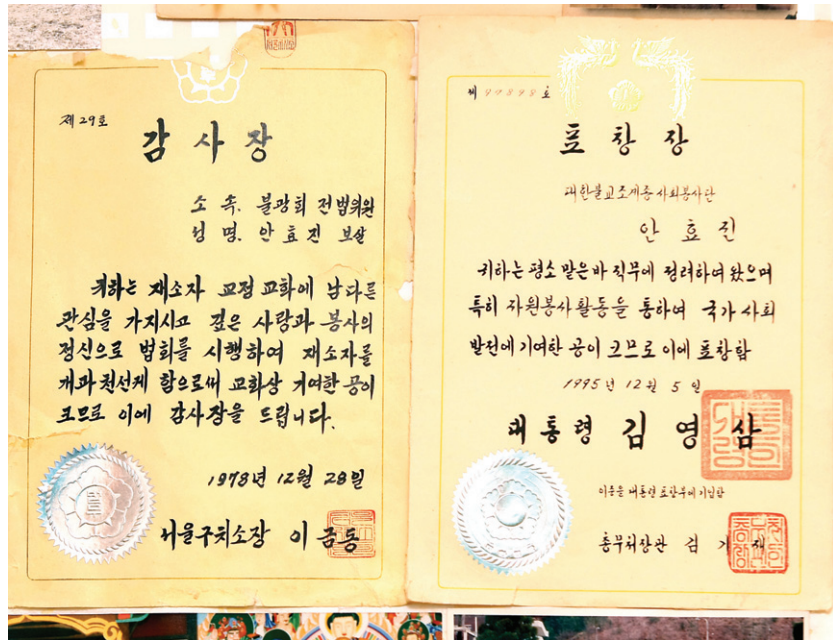 제 29 호
감 사 장
소 속. 불광회 전법위원
성 명. 안 효 진 보살
귀하는 재소자 교정 교화에 남다른
관심을 가지시고 깊은 사랑과 봉사의
정신으로 법회를 시행하여 재소자를
개과천선케 함으로써 교화상 기여한 공이
크므로 이에 감사장을 드립니다.
1978년 12월 28일
서울구치소장 이 금 동
제 호
표 창 장
대한불교조계종 사회봉사단
안 효 진
귀하는 평소 맡은 바 직무에 정려하여 왔으며
특히 자원봉사 활동을 통하여 국가 사회
발전에 기여한 공이 크므로 이에 표창함
1995년 12월 5일
대 통 령 김 영 삼
이 증을 대통령 표창부에 기입함
총무처장관 김 기 재